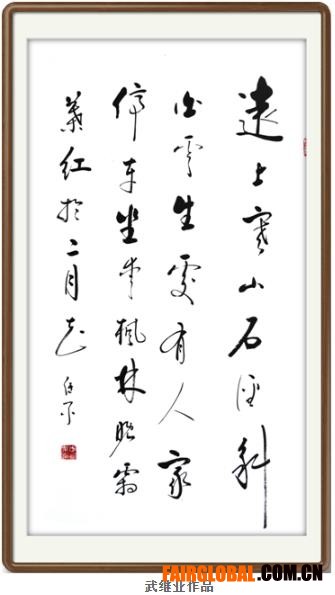 遠上寒山石徑斜
白雲生處有人家
停车坐爱枫林晚霜
葉红於二月花
FAIRGLOBAL.COM.CN
武维业作品